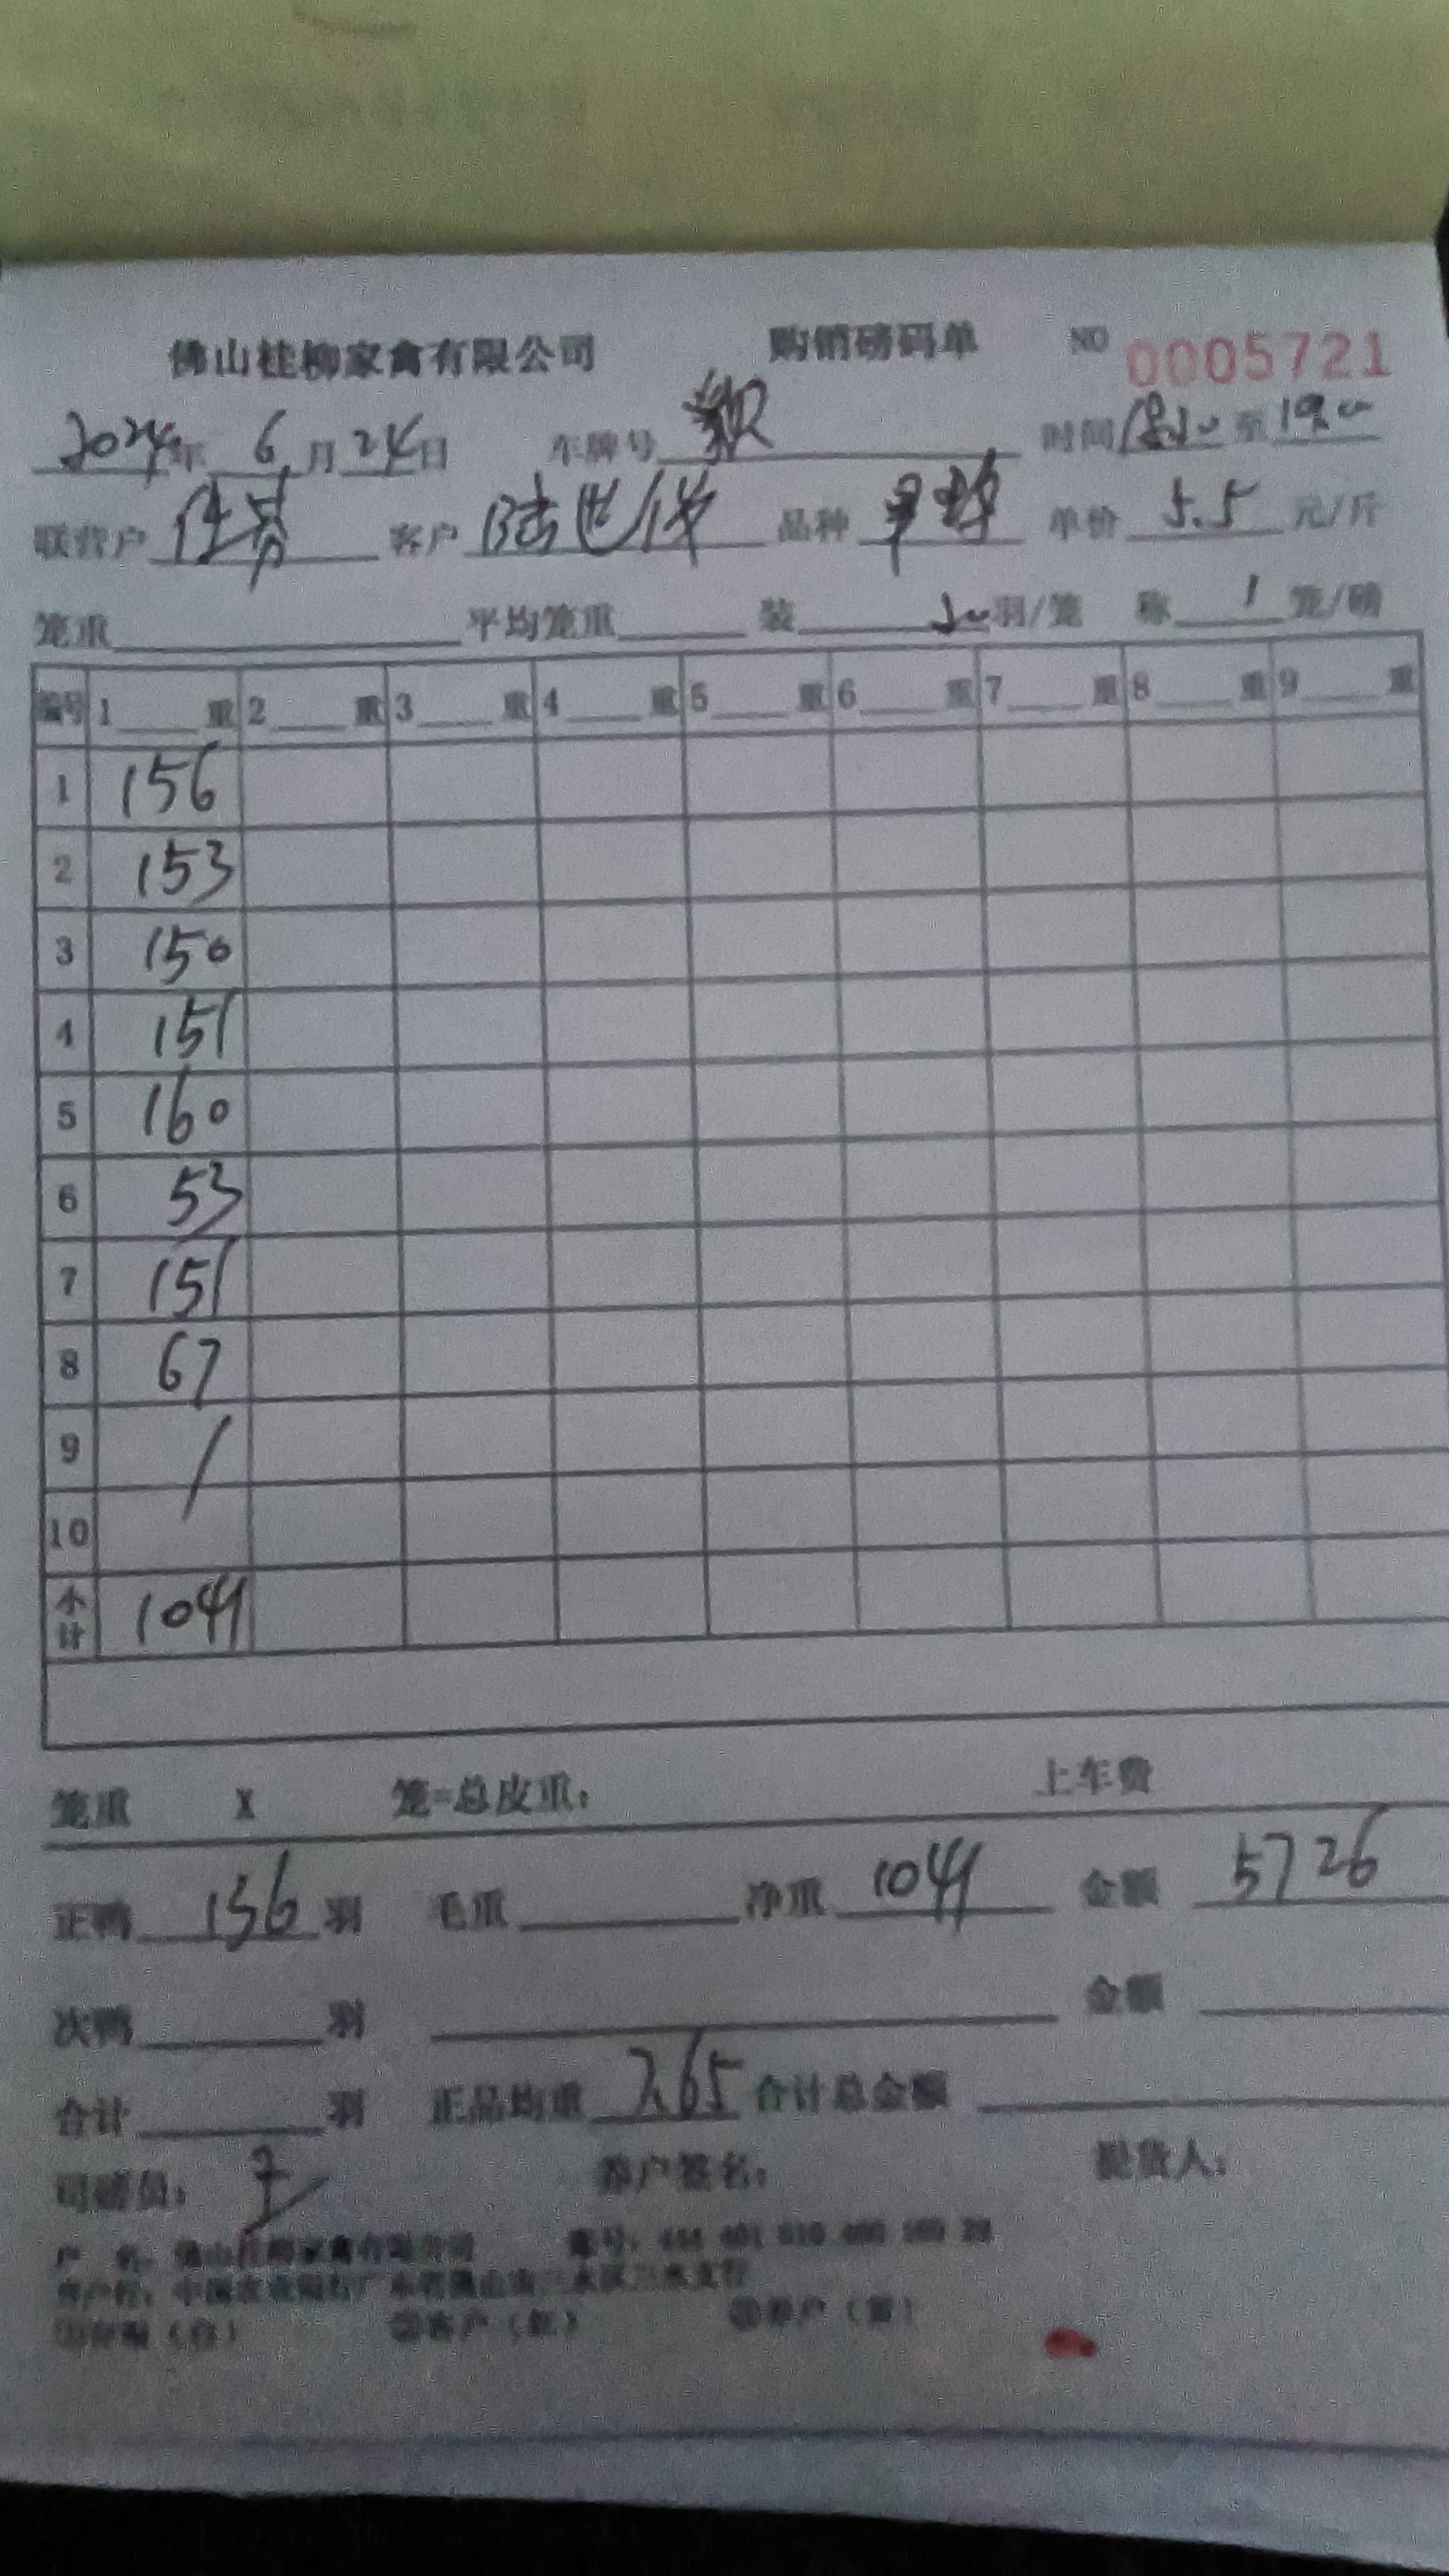 佛山桂柳家禽有限公司 购销磅码单 NO 0005721
2024年 6月24日 车牌号 时间 至
联营户 客户 陆 品种 单价 5.5 元/斤
笼重 平均笼重 装 20 羽/笼 称 1 笼/磅
编号 1 重 2 重 3 重 4 重 5 重 6 重 7 重 8 重 9 重
1 156
2 153
3 150
4 151
5 160
6 53
7 151
8 67
9 /
10
小计 1041
笼重 X 笼=总皮重： 上车费
正鸭 136 羽 毛重 净重 1041 金额 5726
次鸭 羽 金额
合计 羽 正品均重 7.65 合计总金额
司磅员： 养户签名： 提货人：
户 名：佛山桂柳家禽有限公司 账号：
开户行：中国农业银行广东省佛山市三水区三水支行
②客户（红）